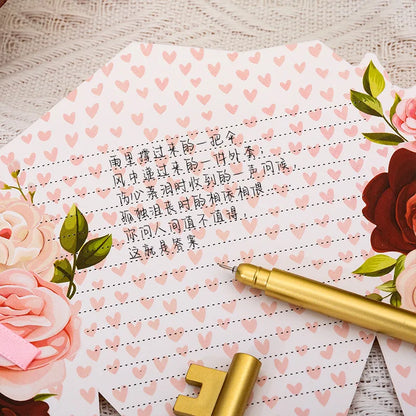 雨里撑过来的一把伞,
风中递过来的一件外套,
伤心落泪时收到的一声问候,
孤独漫长时的相濡相偎……
你问人间值不值得,
这就是答案